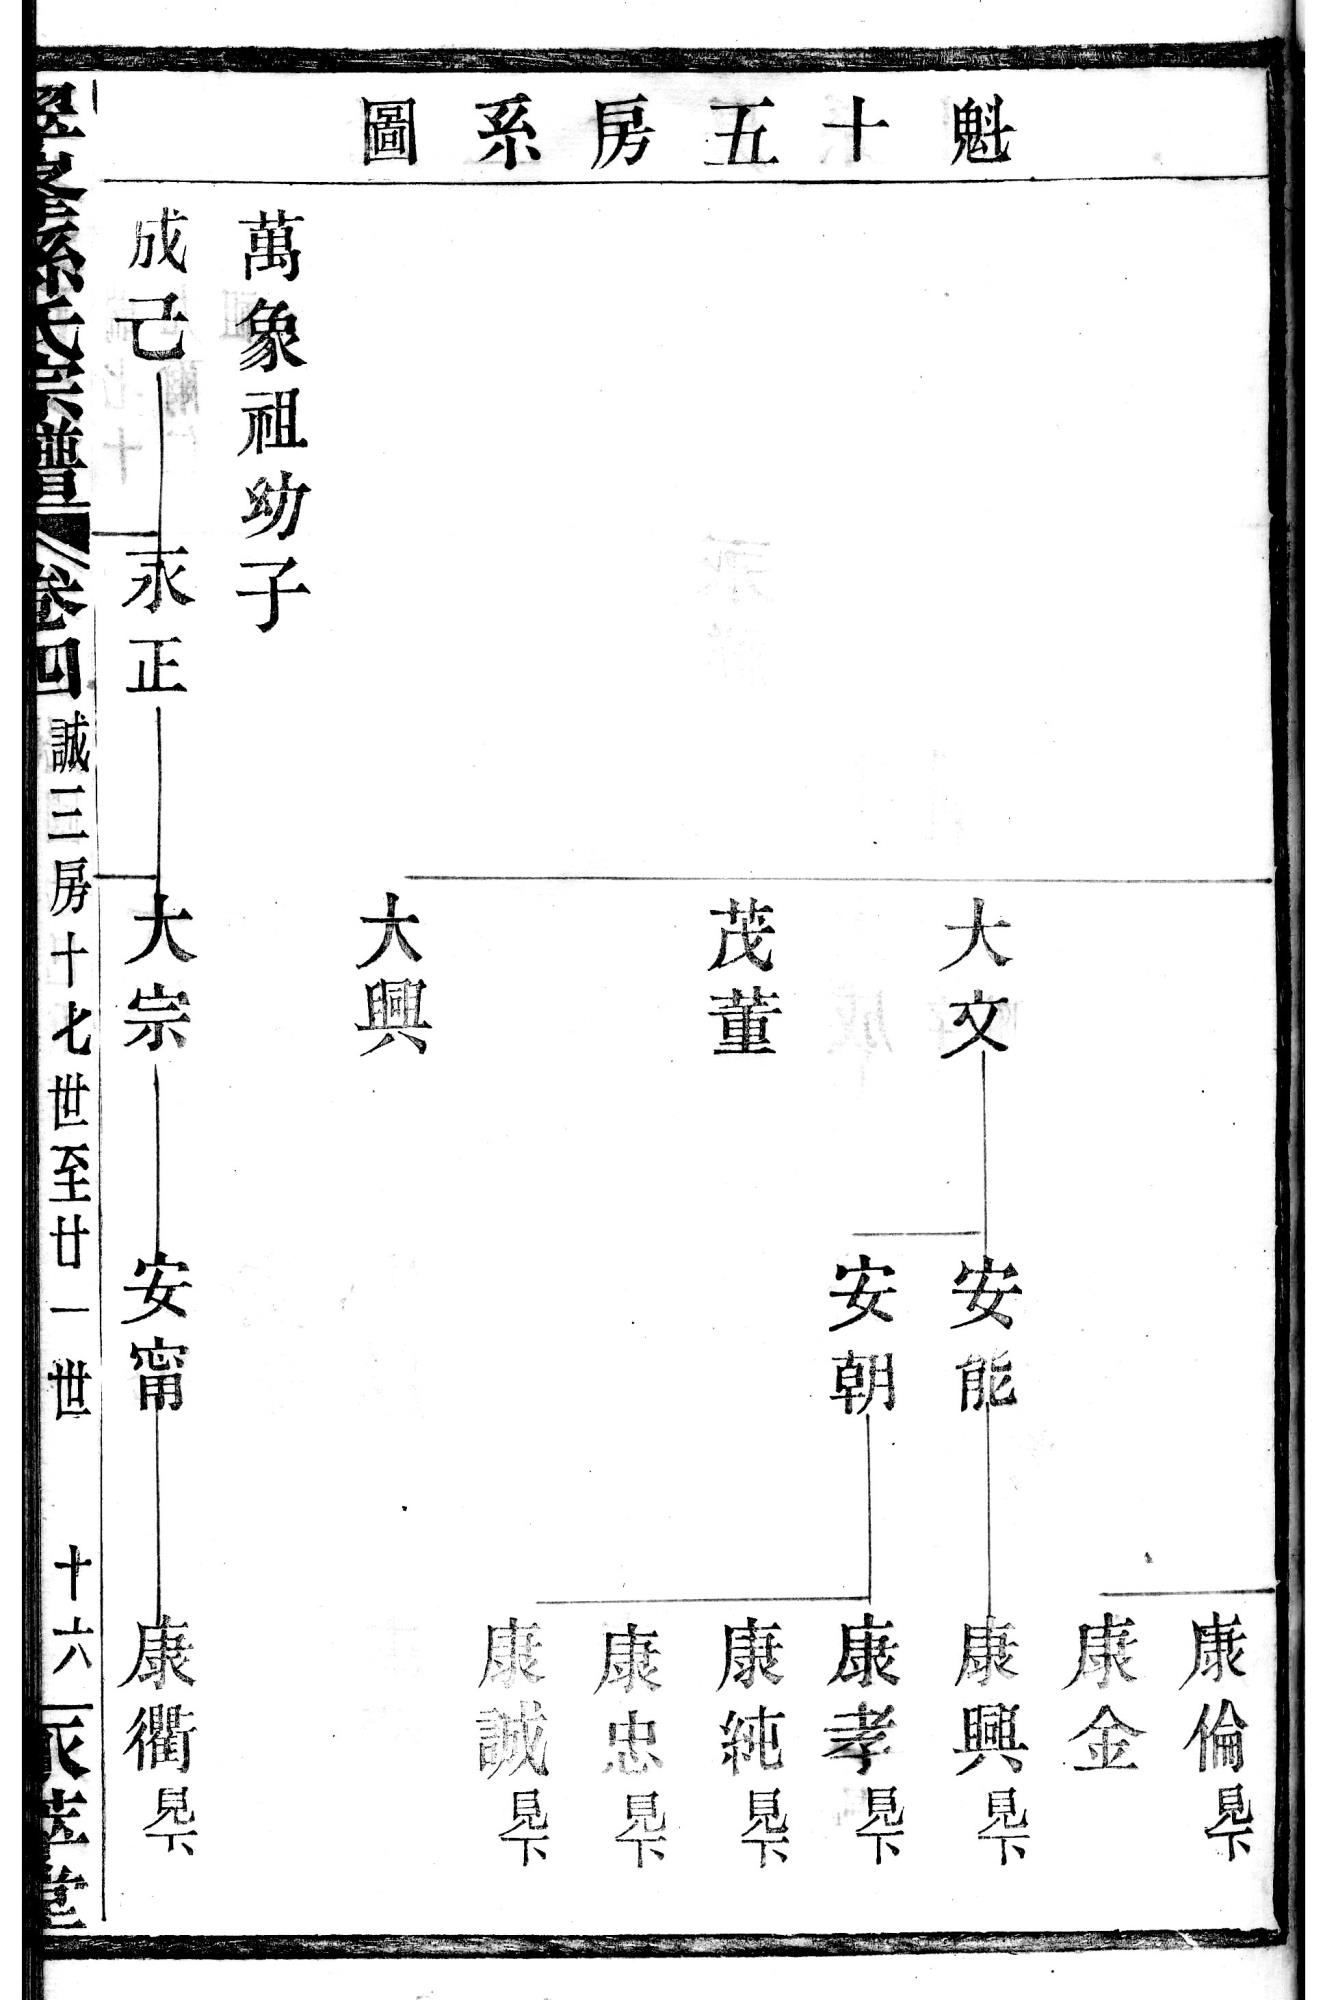 魁十五房系圖
康倫見下
康金
大文
安能
康興見下
安朝
康孝見下
茂董
康純見下
康忠見下
康誠見下
大興
萬象祖幼子
成己
永正
大宗
安甯
康衢見下
孫氏宗譜
卷四
誠三房十七世至廿一世
十六